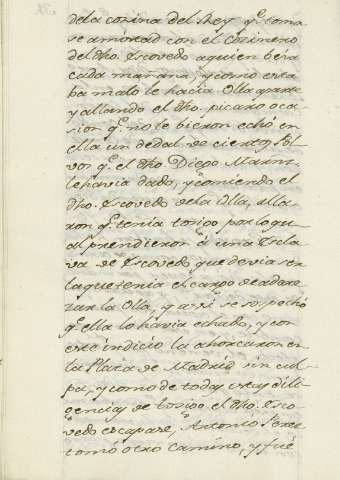 dela cozina del Rey qe. toma
se amistad con el Cozinero
del dho. Escovedo aquien beia
cada mañana, y como esta
ba malo le hacia Olla aparte
y allando el dho. picaro oca
sion qe. no le bieron echó en
ella un dedal de ciertos Pol
vos qe. el dho Diego Martin
le havia dado, y comiendo el
dho. Escovedo dela Olla, alla
ron qe. tenia tosigo por lo qu
al prendieron á una Escla
va de Escovedo que devia ser
la que tenia el cargo de adere
zar la Olla, y asi se sospechó
qe. ella lo havia echado, y con
este indicio la ahorcaron en
la Plaza de Madrid sin cul
pa, y como de todas estas dili
gencias de tosigo el dho. Esco
vedo escapase, Antonio Perez
tomó otro camino, y fué